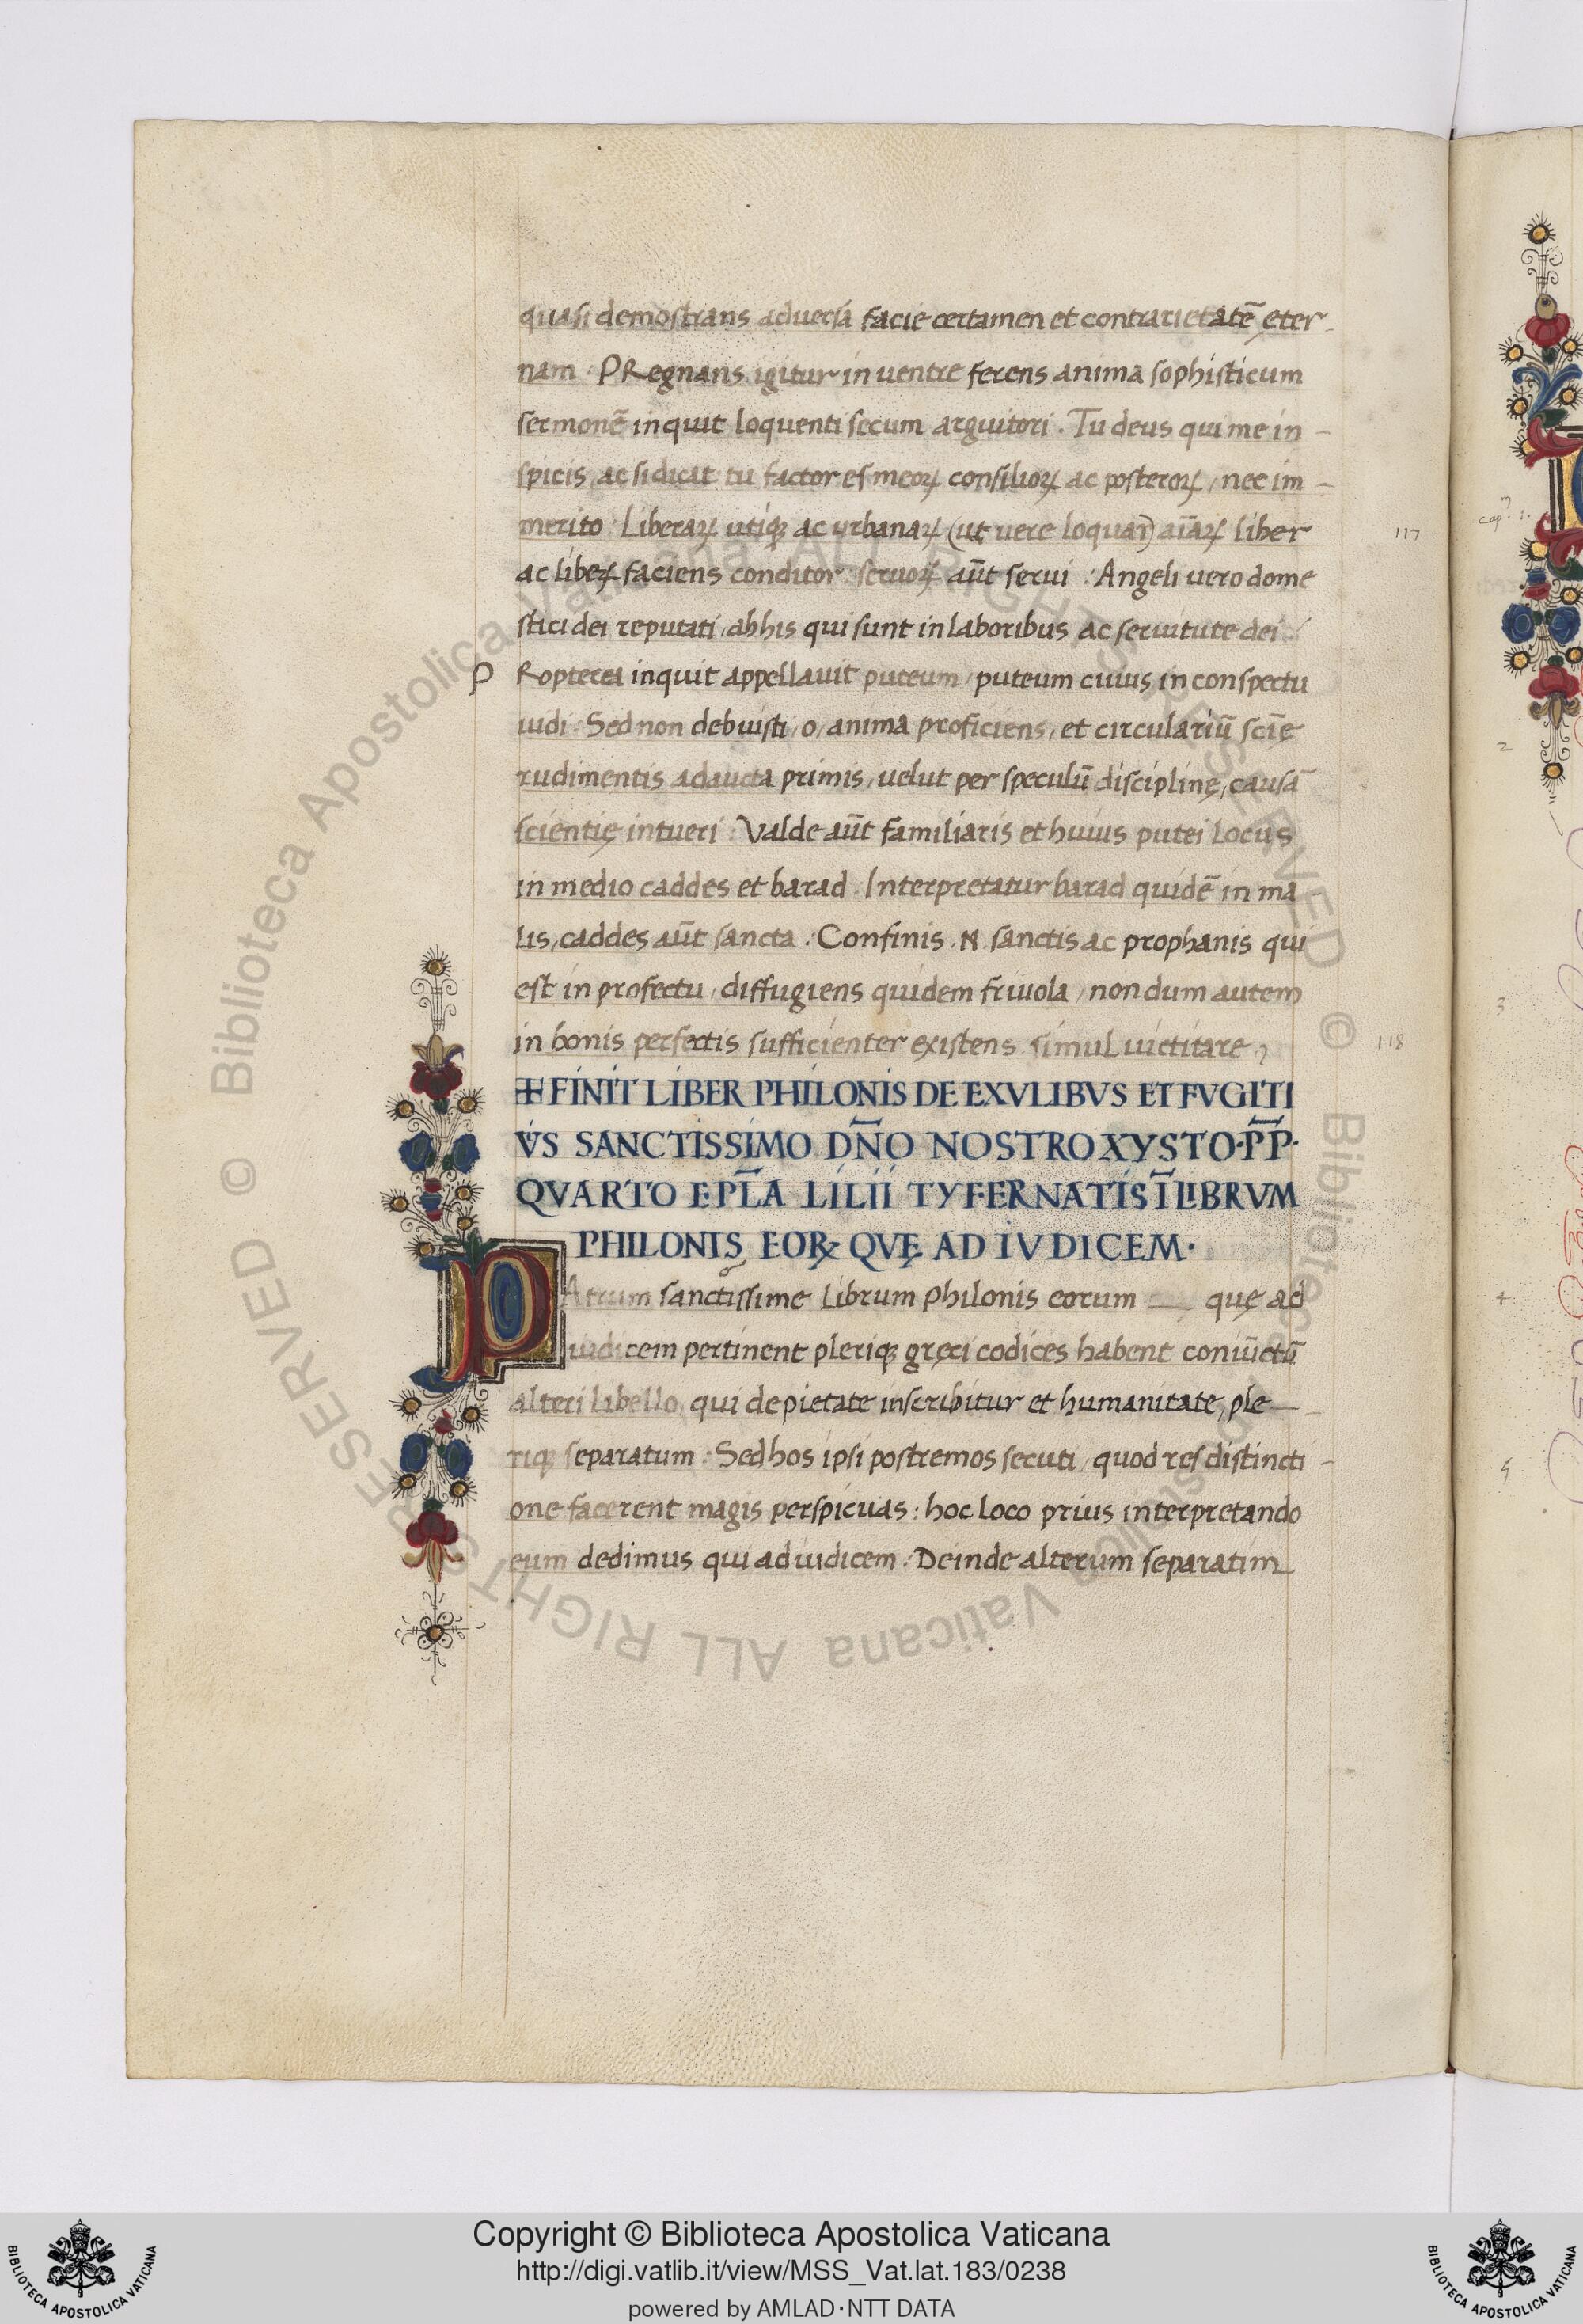 quasi demostrans aduersā facie certamen et contrarietatē ęter-
nam : PRegnans igitur in uentre ferens anima sophisticum
sermonē inquit loquenti secum arguitori . Tu deus qui me in-
spicis, ac si dicat tu factor es meoꝝ consilioꝝ ac posteroꝝ, nec im-
merito : Liberaꝝ utiqꝫ ac urbanaꝝ (ut uere loquar) aīaꝝ liber
117
ac libeꝝ faciens conditor : seruoꝝ aūt serui : Angeli uero dome
stici dei reputati, ab his qui sunt in laboribus ac seruitute dei :
P Ropterea inquit appellauit puteum, puteum cuius in conspectu
uidi : Sed non debuisti, o, anima proficiens, et circulariū scīę
rudimentis adaucta primis, uelut per speculū disciplinę, causā
scientię intueri : Valde aūt familiaris et huius putei locus
in medio caddes et barad . Interpretatur barad quidē in ma-
lis, caddes aūt sancta : Confinis .N. sanctis ac prophanis qui
est in profectu, diffugiens quidem friuola, nondum autem
in bonis perfectis sufficienter existens simul uictitare
118
FINIT LIBER PHILONIS DE EXVLIBVS ET FVGITI
VS SANCTISSIMO DN̄O NOSTRO XYSTO·P̄P̄·
QVARTO EPL̄A LILII TYFERNATIS Ī LIBRVM
PHILONIS EOꝜ QVĘ AD IVDICEM·
PAtrum sanctissime Librum Philonis eorum quę ad
iudicem pertinent pleriqꝫ gręci codices habent coniūctū
alteri libello, qui de pietate inscribitur et humanitate, ple-
riqꝫ separatum : Sed hos ipsi postremos secuti, quod res distincti-
one facerent magis perspicuas : hoc loco prius interpretando
eum dedimus qui ad iudicem : Deinde alterum separatim
cap. 1.
2
3
4
5
© Biblioteca Apostolica Vaticana ALL RIGHTS RESERVED
© Biblioteca Apostolica Vaticana ALL RIGHTS RESERVED
Copyright © Biblioteca Apostolica Vaticana
http://digi.vatlib.it/view/MSS_Vat.lat.183/0238
powered by AMLAD·NTT DATA
BIBLIOTECA APOSTOLICA VATICANA
BIBLIOTECA APOSTOLICA VATICANA